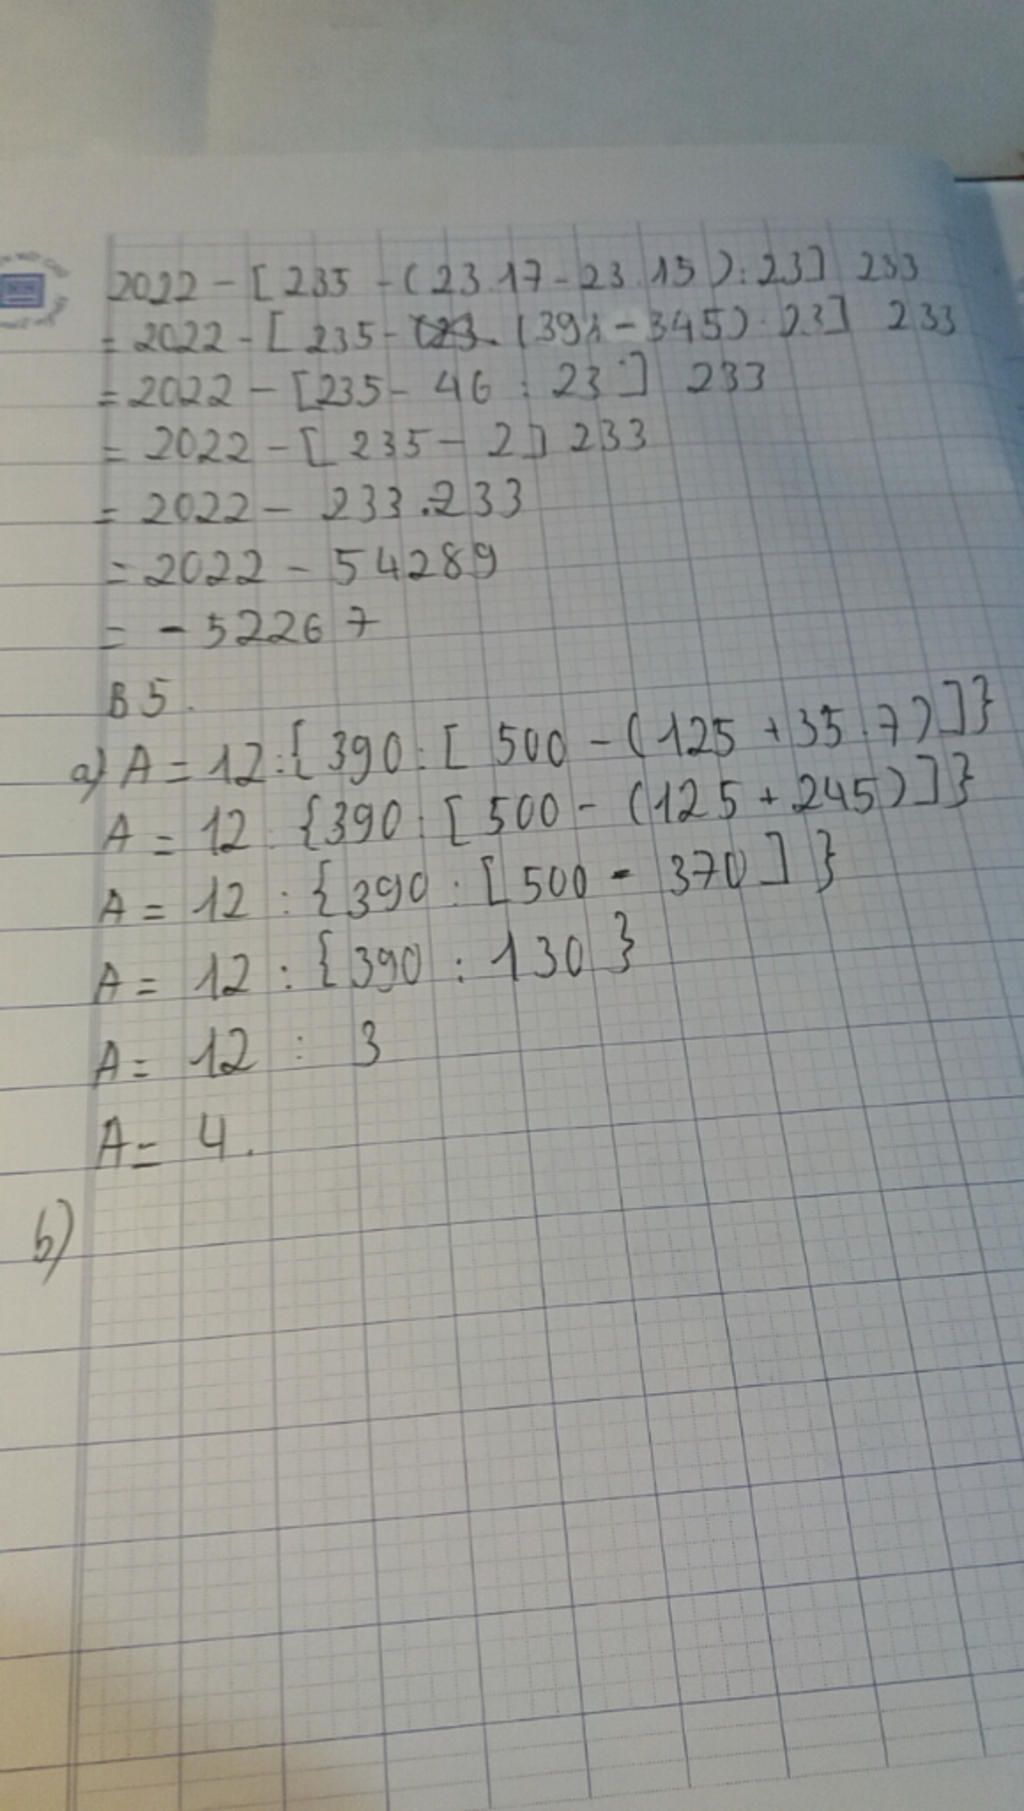 2022 - [ 235 - ( 23.17 - 23.15 ) : 23 ] 233
= 2022 - [ 235 - (391 - 345) : 23 ] 233
= 2022 - [235 - 46 : 23 ] 233
= 2022 - [ 235 - 2 ] 233
= 2022 - 233.233
= 2022 - 54289
= - 52267
B5.
a) A = 12 : { 390 : [ 500 - ( 125 + 35.7 ) ] }
A = 12 : {390 : [ 500 - (125 + 245) ] }
A = 12 : { 390 : [ 500 - 370 ] }
A = 12 : { 390 : 130 }
A = 12 : 3
A = 4.
b)